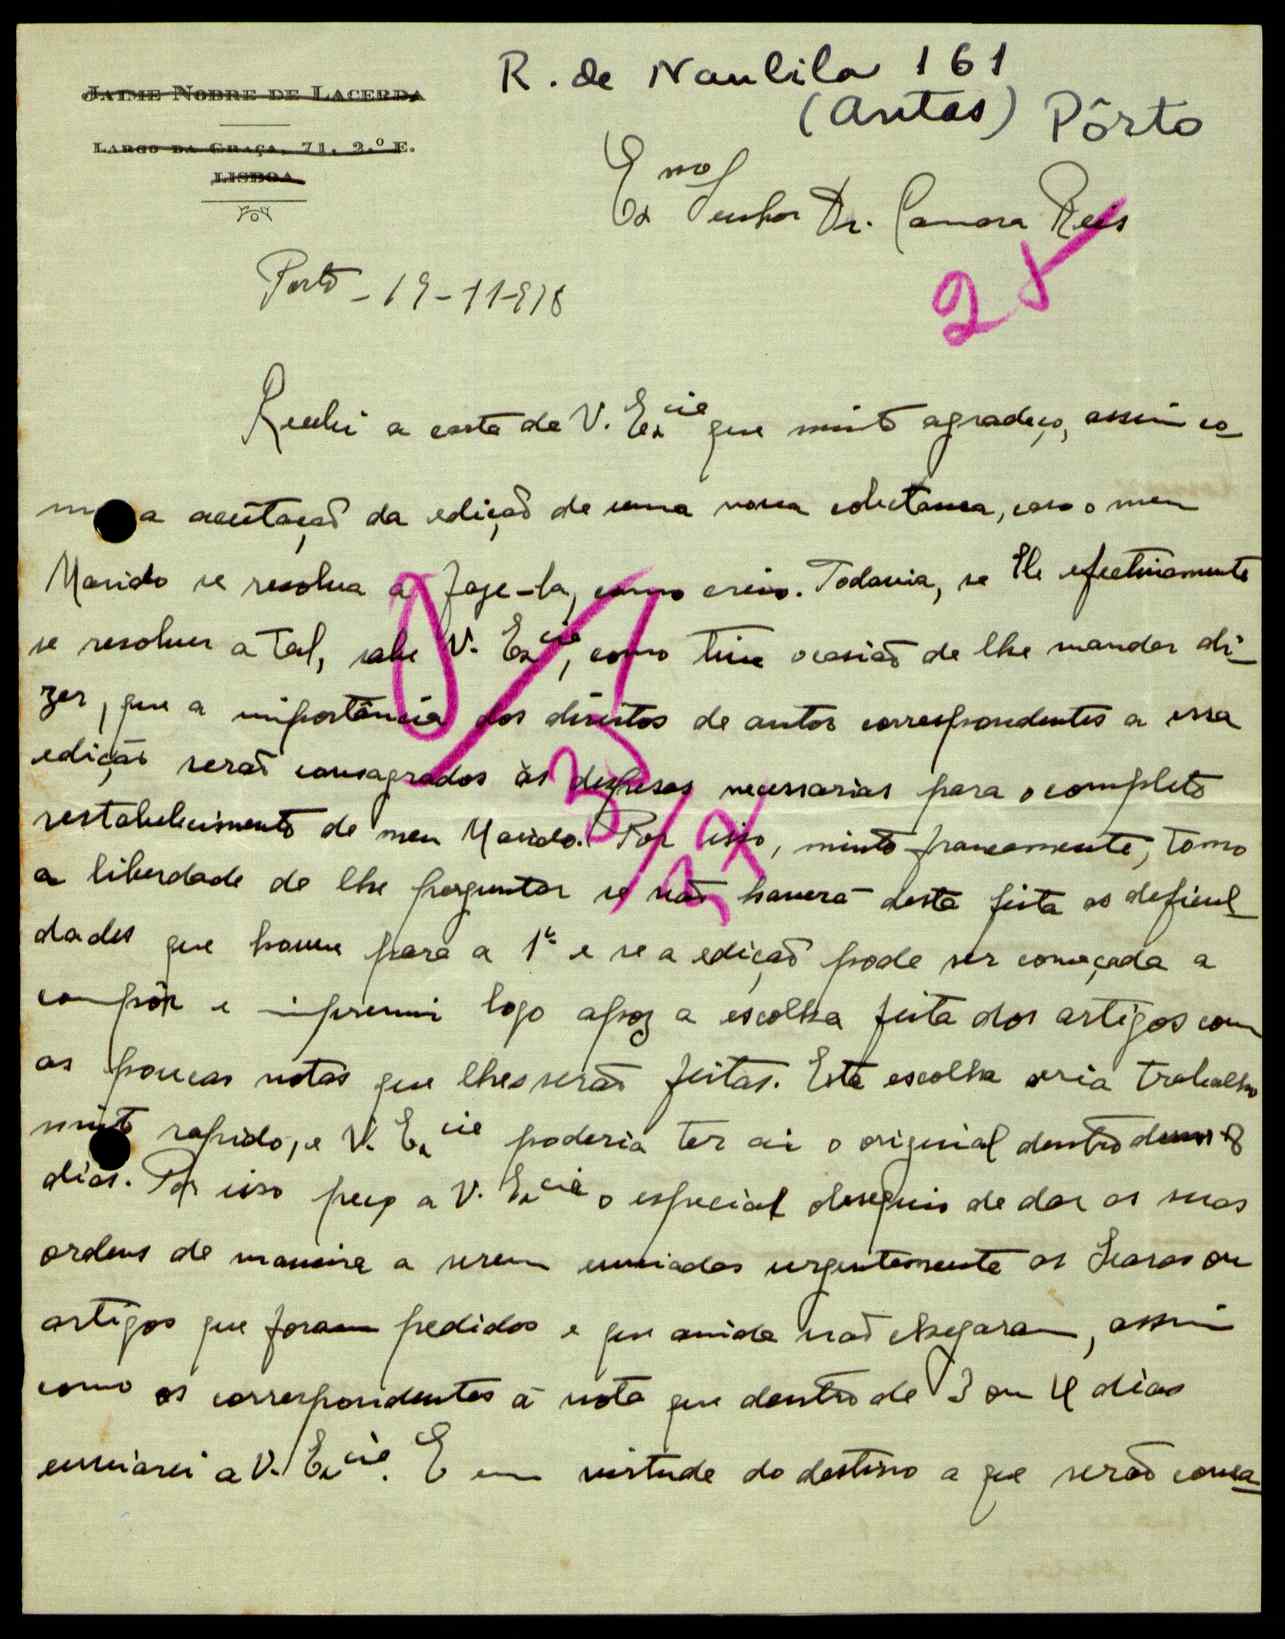 R. de Naulila 161
(Antas) Pôrto
JAIME NOBRE DE LACERDA
LARGO DA GRAÇA, 71, 2.º E.
LISBOA
Exmo Senhor Dr. Camara Reis
25
Porto - 19-11-938
Recebi a carta de V. Excia que muito agradeço, assim co-
mo a aceitação da edição de uma nova colectanea, caso o meu
Marido se resolva a faze-la, como creio. Todavia, se Ele efectivamente
se resolver a tal, sabe V. Excia, como tive ocasião de lhe mandar di-
zer, que a importância dos direitos de autor correspondentes a essa
edição serão consagrados às despesas necessarias para o completo
restabelecimento de meu Marido. Por isso, muito francamente, tomo
a liberdade de lhe perguntar se não haverá desta feita as deficul-
dades que houve para a 1ª e se a edição pode ser começada a
compôr e imprimir logo apoz a escolha feita dos artigos com
as poucas notas que lhes serão feitas. Esta escolha seria trabalho
muito rapido, e V. Excia poderia ter ai o original dentro duns 8
dias. Por isso peço a V. Excia o especial obsequio de dar as suas
ordens de maneira a serem enviadas urgentemente as Searas ou
artigos que foram pedidos e que ainda não chegaram, assim
como os correspondentes à nota que dentro de 3 ou 4 dias
enviarei a V. Excia. E em virtude do destino a que serão consa-